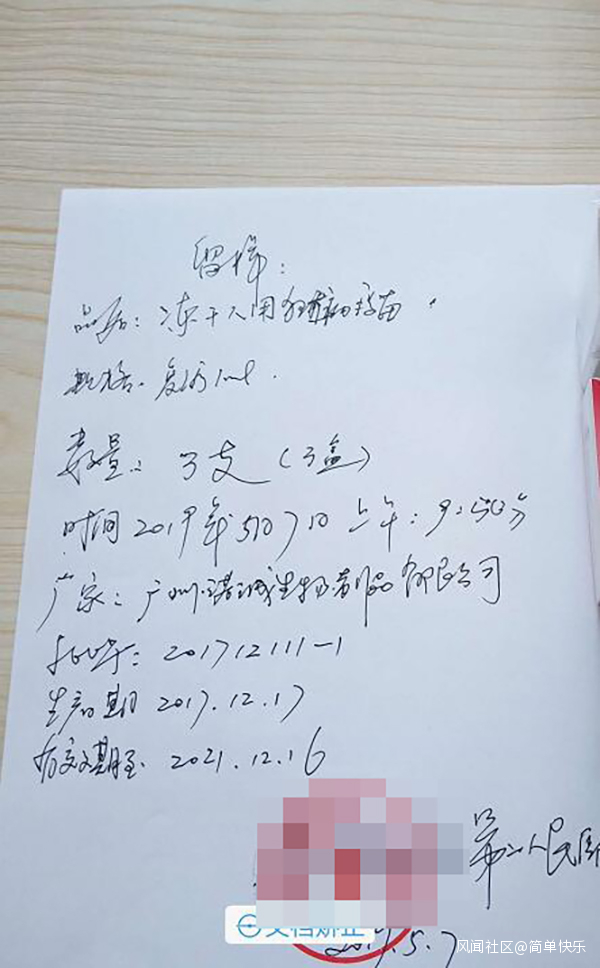 留样:
品名: 冻干人用狂犬病疫苗
规格. 复溶1ml.
数量: 3支(3盒)
时间 2019年5月7日 上午: 9:50分
厂家: 广州诺诚生物制品有限公司
批号: 201712111-1
生产日期 2017.12.17
有效期至. 2021.12.16
第二人民医
文档矫正
5.7
风闻社区@简单快乐